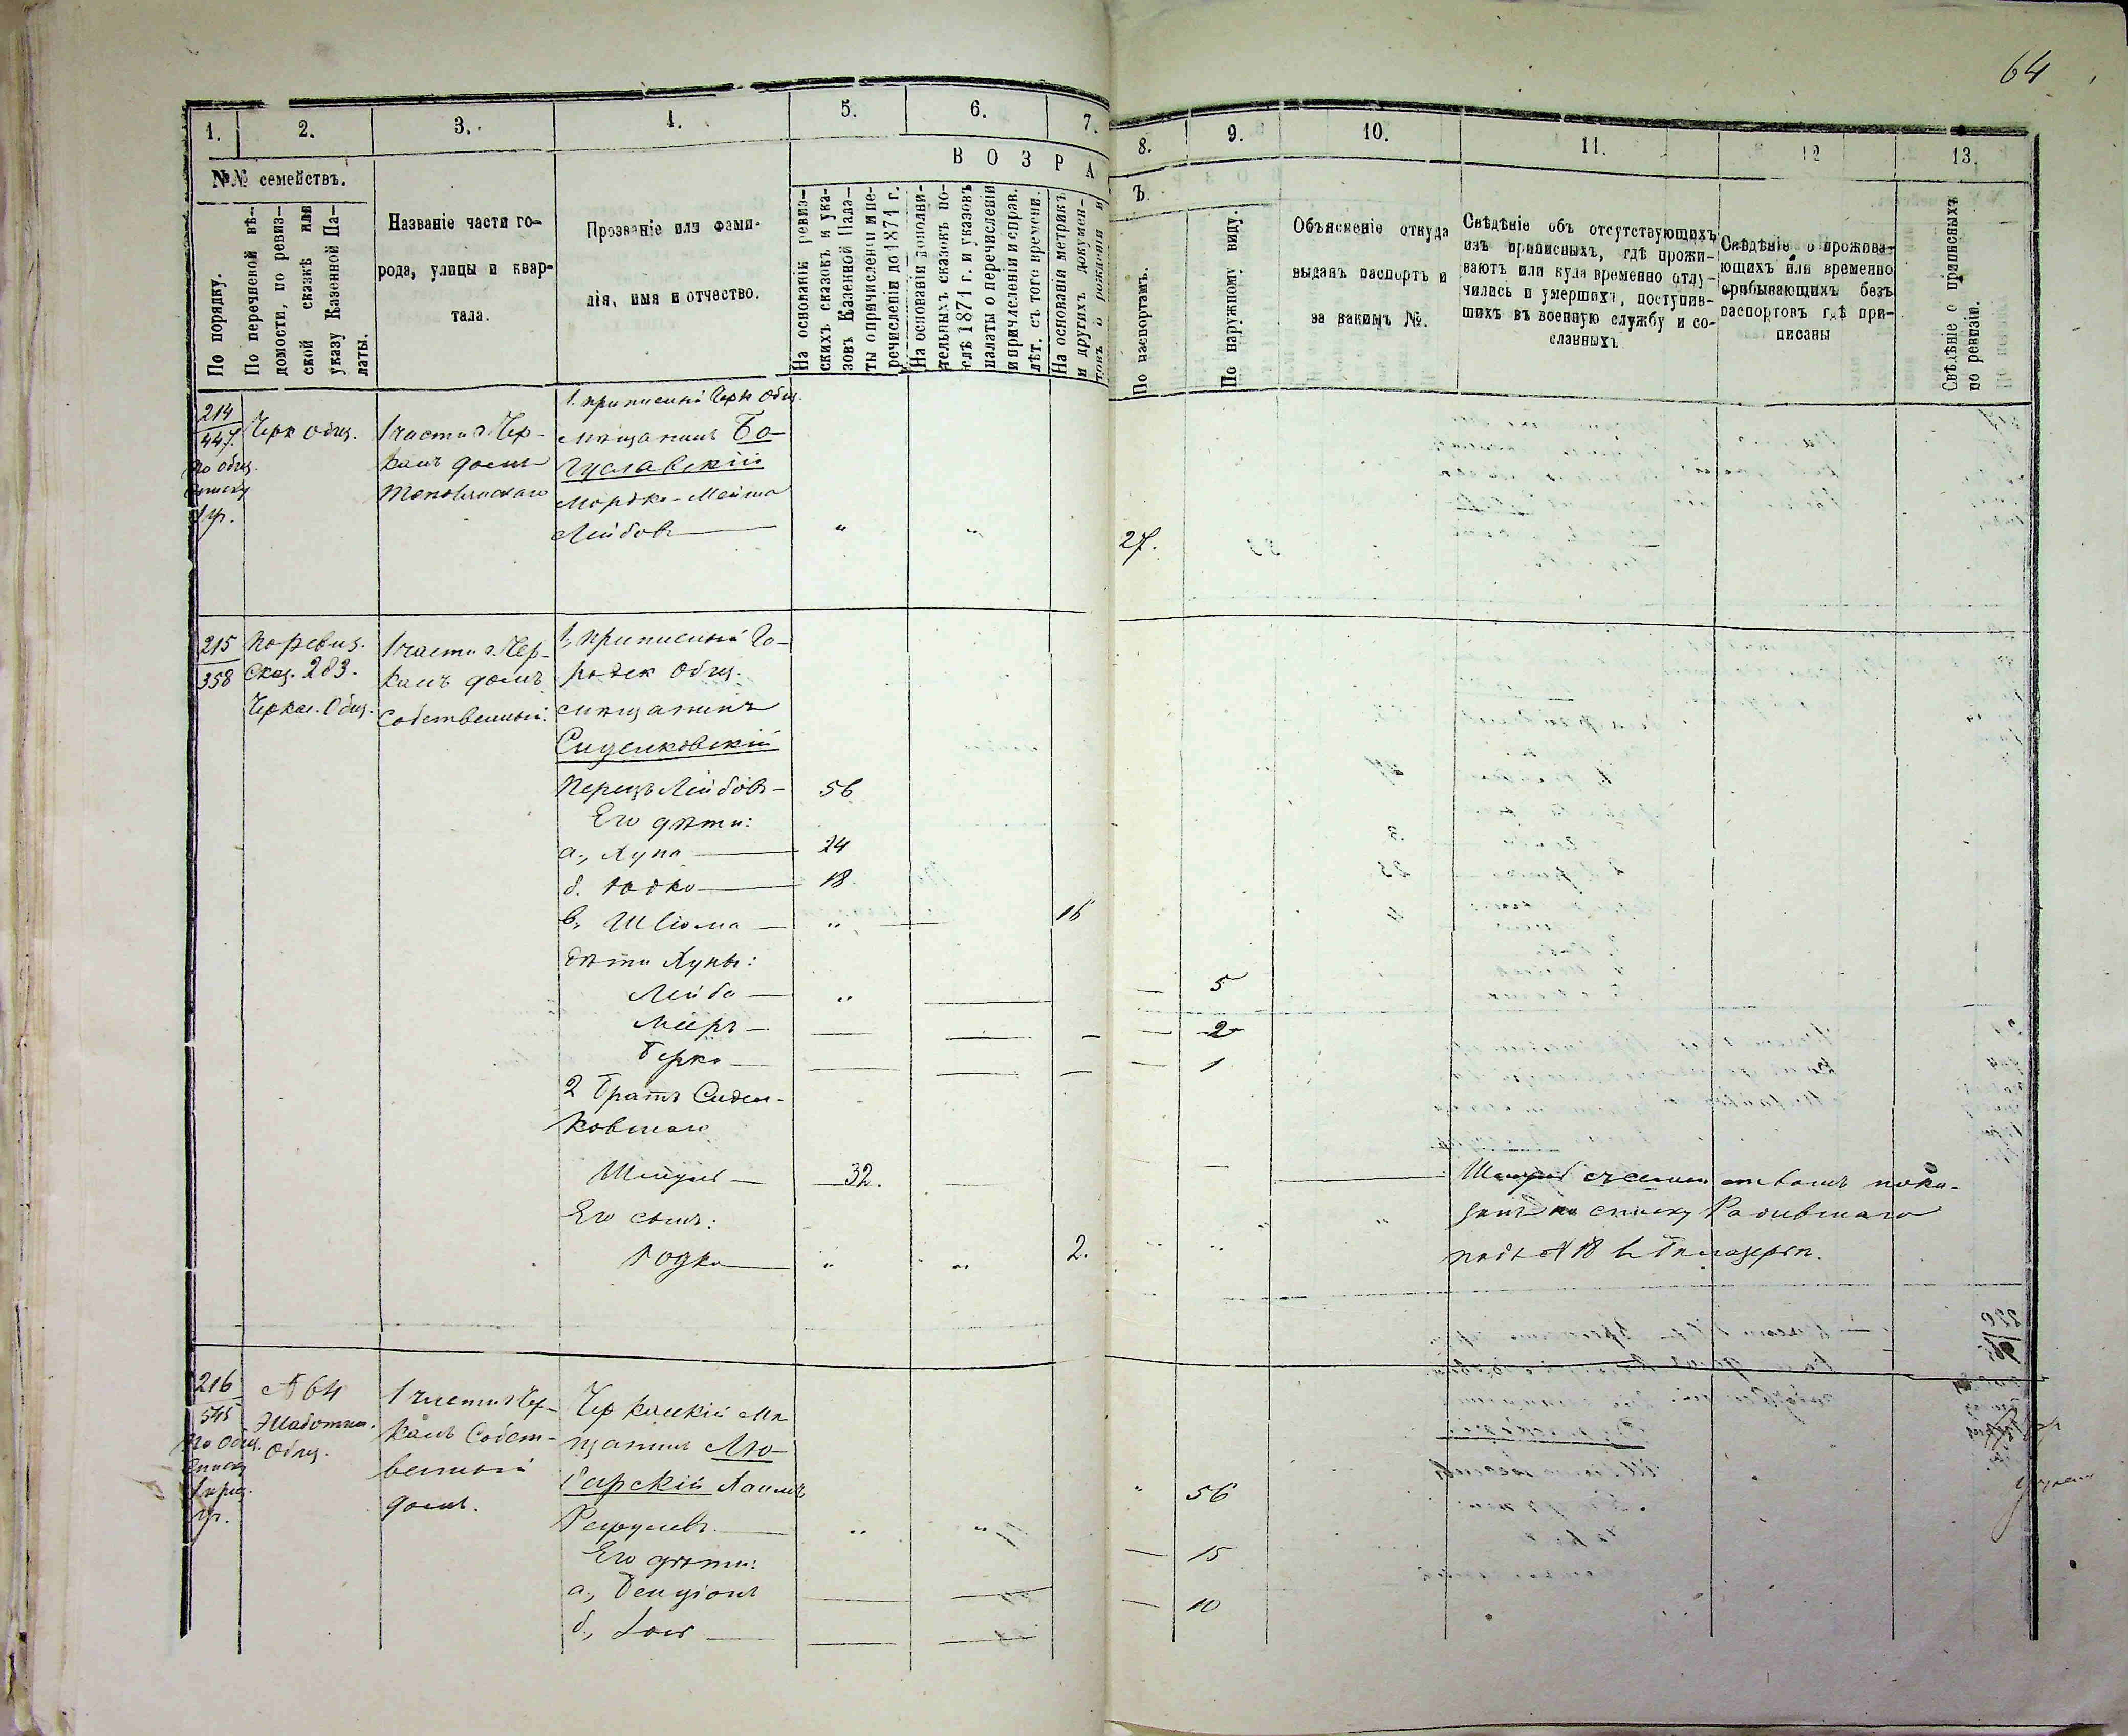 64
1.
2.
3.
4.
5.
6.
7.
8.
9.
10.
11.
12
13.
№№ семействъ.
По порядку.
По перечневой вѣ-
домости, по ревиз-
ской сказкѣ или
указу Казенной Па-
латы.
Названіе части го-
рода, улицы и квар-
тала.
Прозваніе или фами-
лія, имя и отчество.
ВОЗРА
Ъ.
На основаніи ревиз-
скихъ сказокъ и ука-
зовъ Казенной Пала-
ты о причисленіи и пе-
речисленіи до 1871 г.
На основаніи дополни-
тельныхъ сказокъ по-
слѣ 1871 г. и указовъ
палаты о перечисленіи
и причисленіи и справ.
лѣт. съ того времени.
На основаніи метрикъ
и другихъ докумен-
товъ о рожденіи и
По паспортамъ.
По наружному виду.
Объясненіе откуда
выданъ паспортъ и
за какимъ №.
Свѣдѣніе объ отсутствующихъ
изъ приписныхъ, гдѣ прожи-
ваютъ или куда временно отлу-
чились и умершихъ, поступив-
шихъ въ военную службу и со-
сланныхъ
Свѣдѣніе о прожива-
ющихъ или временно
прибывающихъ безъ
паспортовъ гдѣ при-
писаны
Свѣдѣніе о приписныхъ
по ревизіи.
214
447.
по общ.
списку
Черк общ.
1 части г. Чер-
касъ домъ
1. приписный Черк Общ.
мѣщанинъ Бо-
гуславскій
Мордко-Мейша
Лейбовъ
" "
27.
215
358
По ревиз.
Сказ. 283.
Черкас. Общ.
1 части г. Чер-
касъ домъ
Собственный.
1, приписный Го-
родск Общ.
мѣщанинъ
Сиденковскій
Перецъ Лейбовъ — 56
Его дѣти:
а., Хуна — 24
б. Іодко — 18
в, Шлёма — " 16
дѣти Хуны:
Лейба — " 5
Мееръ — 2
Берко — 1
2 Братъ Сиден-
ковскаго
32.
Его сынъ:
Іодко " " 2.
списку
подъ № 18
216
545
По Общ.
списку
№ 64
Общ.
1 части г. Чер-
касъ Собст-
венный
домъ.
Черкаскій мѣ
щанинъ Лю-
барскій Хаимъ
" " " 56
Его дѣти:
а., Бенціонъ 15
б., 10